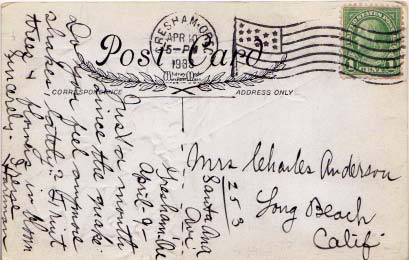 GRESHAM, ORE.
APR 10
5-PM
1933
Post Card
CORRESPONDENCE
ADDRESS ONLY
1 CENT 1
Gresham, Ore
April-9-
Jus' a month
since the quake.
Do you feel anymore
shakes lately? Fruit
trees & flowers in bloom
Sincerely-
Mrs Charles Anderson
253
Santa Ana
Ave.
Long Beach
Calif.